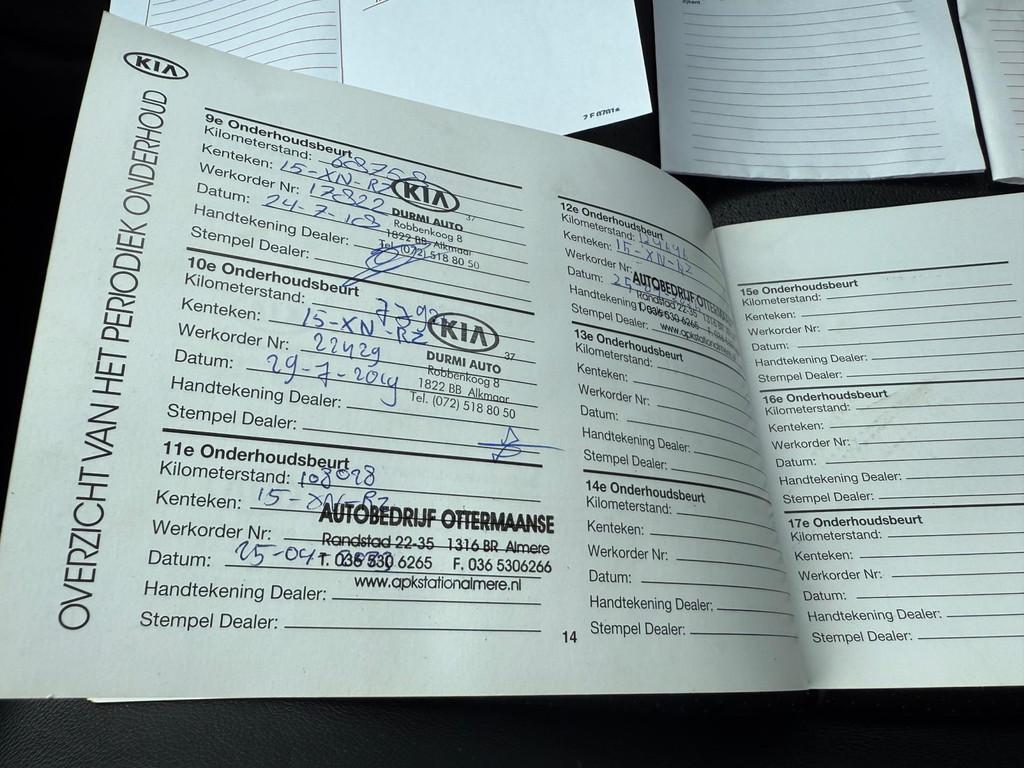 KIA
OVERZICHT VAN HET PERIODIEK ONDERHOUD
7 F 0701a
9e Onderhoudsbeurt
Kilometerstand:
Kenteken: 15-XN-RZ
Werkorder Nr: 17822
Datum: 24-7-
Handtekening Dealer:
Stempel Dealer:
KIA
37
DURMI AUTO
Robbenkoog 8
1822 BB Alkmaar
Tel. (072) 518 80 50
10e Onderhoudsbeurt
Kilometerstand:
Kenteken: 15-XN-RZ
Werkorder Nr: 22429
Datum: 29-7-2019
Handtekening Dealer:
Stempel Dealer:
KIA
37
DURMI AUTO
Robbenkoog 8
1822 BB Alkmaar
Tel. (072) 518 80 50
11e Onderhoudsbeurt
Kilometerstand: 108098
Kenteken: 15-XN-RZ
Werkorder Nr:
Datum: 25-04-
Handtekening Dealer:
Stempel Dealer:
AUTOBEDRIJF OTTERMAANSE
Randstad 22-35 1316 BR Almere
T. 036 530 6265 F. 036 5306266
www.apkstationalmere.nl
14
12e Onderhoudsbeurt
Kilometerstand:
Kenteken: 15-XN-RZ
Werkorder Nr:
Datum:
Handtekening
Stempel Dealer:
AUTOBEDRIJF
Randstad 22-35 1316 BR
T. 036 530 6265
www.apkstationalmere.nl
13e Onderhoudsbeurt
Kilometerstand:
Kenteken:
Werkorder Nr:
Datum:
Handtekening Dealer:
Stempel Dealer:
14e Onderhoudsbeurt
Kilometerstand:
Kenteken:
Werkorder Nr:
Datum:
Handtekening Dealer:
Stempel Dealer:
15e Onderhoudsbeurt
Kilometerstand:
Kenteken:
Werkorder Nr:
Datum:
Handtekening Dealer:
Stempel Dealer:
16e Onderhoudsbeurt
Kilometerstand:
Kenteken:
Werkorder Nr:
Datum:
Handtekening Dealer:
Stempel Dealer:
17e Onderhoudsbeurt
Kilometerstand:
Kenteken:
Werkorder Nr:
Datum:
Handtekening Dealer:
Stempel Dealer: